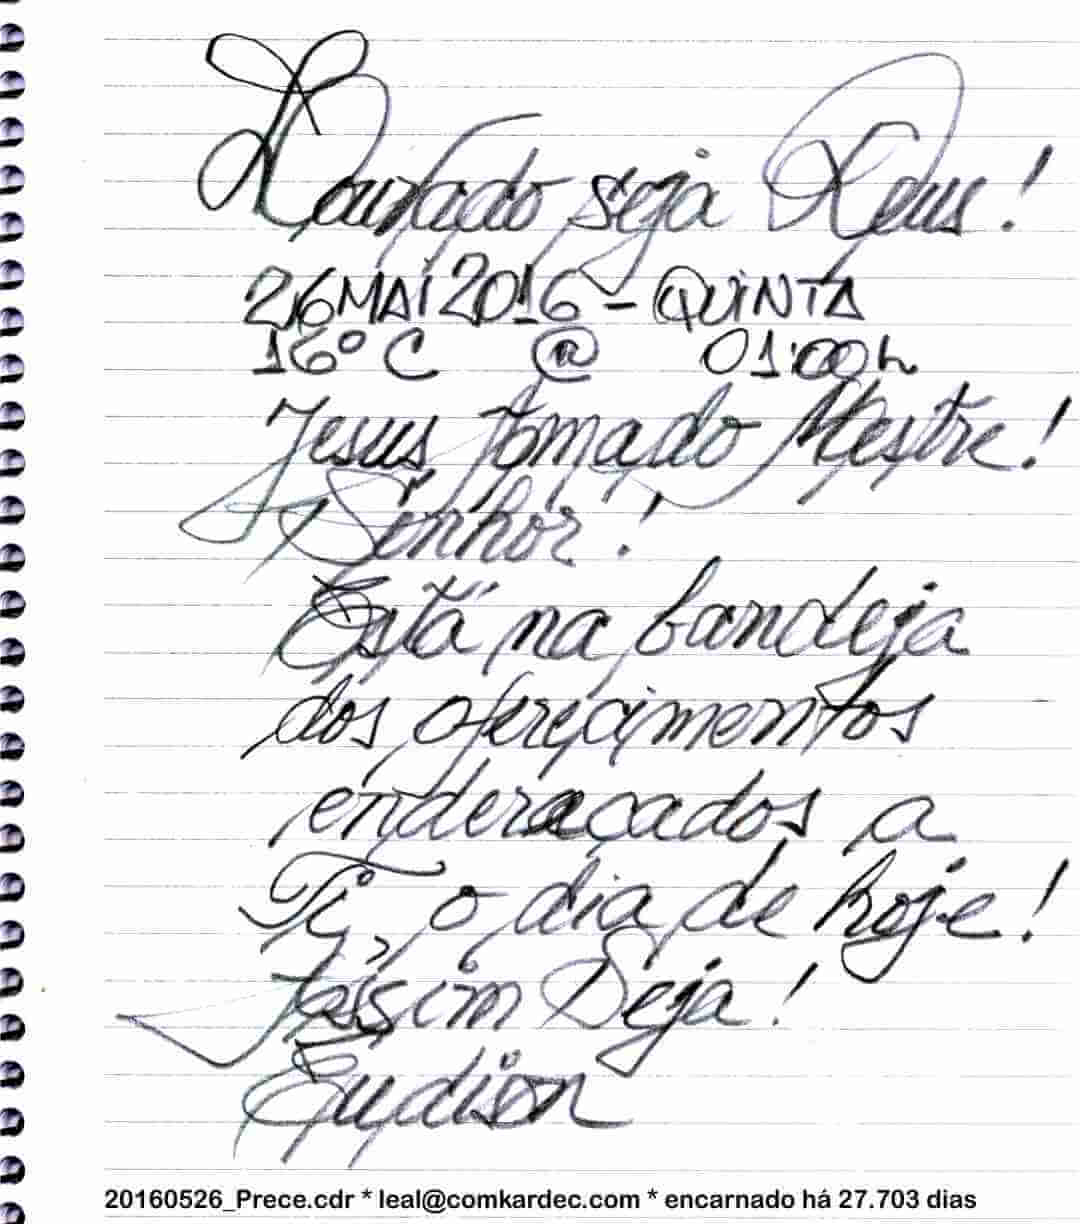 Louvado seja Deus!
26MAI2016 - QUINTA
16º C @ 01:00h
Jesus, Amado Mestre!
Senhor!
Está na bandeja
dos ofereçimentos
enderaçados a
Ti, o dia de hoje!
Assim Seja!
20160526_Prece.cdr * leal@comkardec.com * encarnado há 27.703 dias